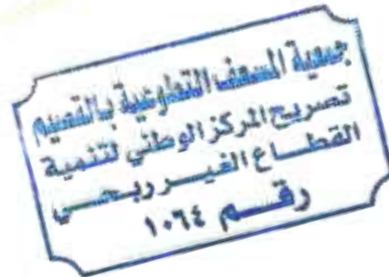 جمعية المسعف التطوعية بالقصيم
تصريح المركز الوطني لتنمية
القطـــاع الغيـــر ربحـــي
رقـــم ١٠٦٤